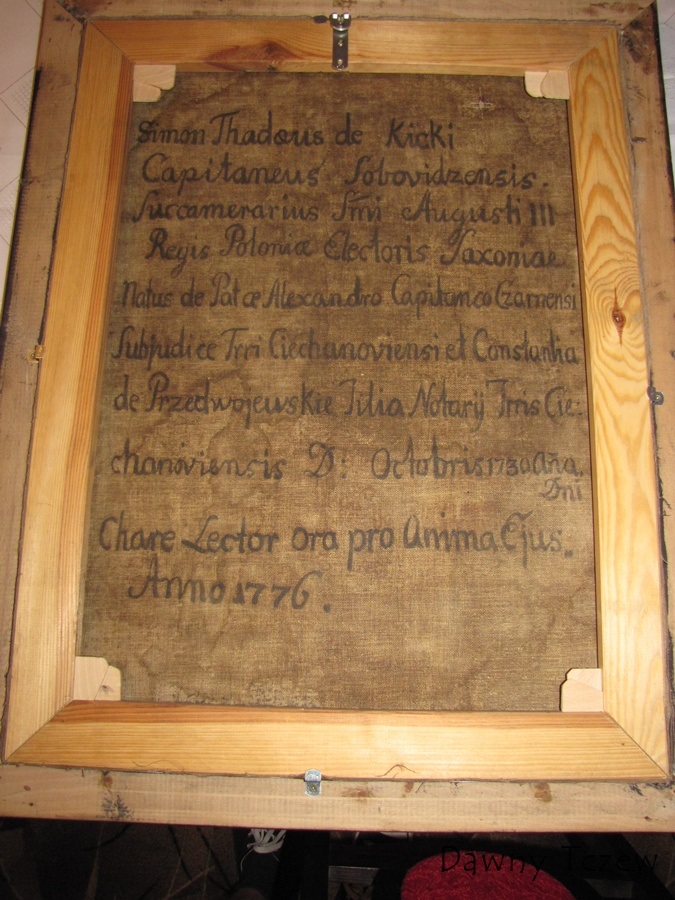 Simon Thadæus de Kicki
Capitaneus Sobovidzensis.
Succamerarius Smi Augusti III
Regis Poloniæ Electoris Saxoniae
Natus de Patæ Alexandro Capitaneo Czarnensi
Subjudice Trri Ciechanoviensi et Constantia
de Przedwojewskie Filia Notarÿ Trris Cie:
chanoviensis D: Octobris 1730 Aña.
Dni
Chare Lector ora pro Anima Ejus.
Anno 1776.
Dawny Tczew